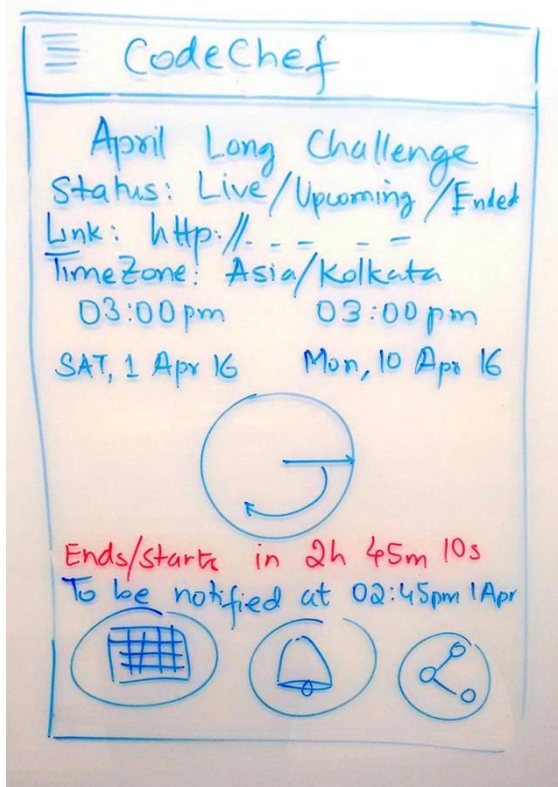 CodeChef
April Long Challenge
Status: Live/Upcoming/Ended
Link: http://_ _ _ _
TimeZone: Asia/Kolkata
03:00pm 03:00pm
SAT, 1 Apr 16 Mon, 10 Apr 16
Ends/starts in 2h 45m 10s
To be notified at 02:45pm 1Apr